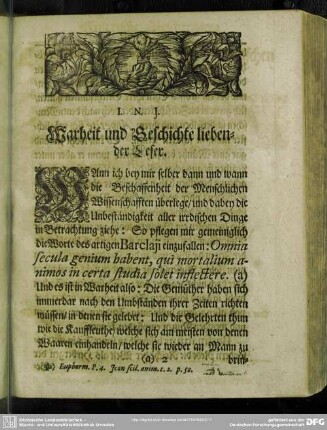 I. N. J.
Warheit und Geschichte lieben-
der Leser.
WAnn ich bey mir selber dann und wann
die Beschaffenheit der Menschlichen
Wissenschafften überlege/ und dabey die
Unbeständigkeit aller irrdischen Dinge
in Betrachtung ziehe: So pflegen mir gemeiniglich
die Worte des artigen Barclaji einzufallen: Omnia
secula genium habent, qui mortalium a-
nimos in certa studia solet inflectere. (a)
Und es ist in Warheit also: Die Gemüther haben sich
immerdar nach den Umbständen ihrer Zeiten richten
müssen/ in denen sie gelebet: Und die Gelehrten thun
wie die Kauffleuthe/ welche sich am meisten von denen
Waaren einhandeln/ welche sie wieder an Mann zu
(a) 2 brin-
(a) Euphorm. P. 4. Icon scil. anim. c. 2. p. 52.